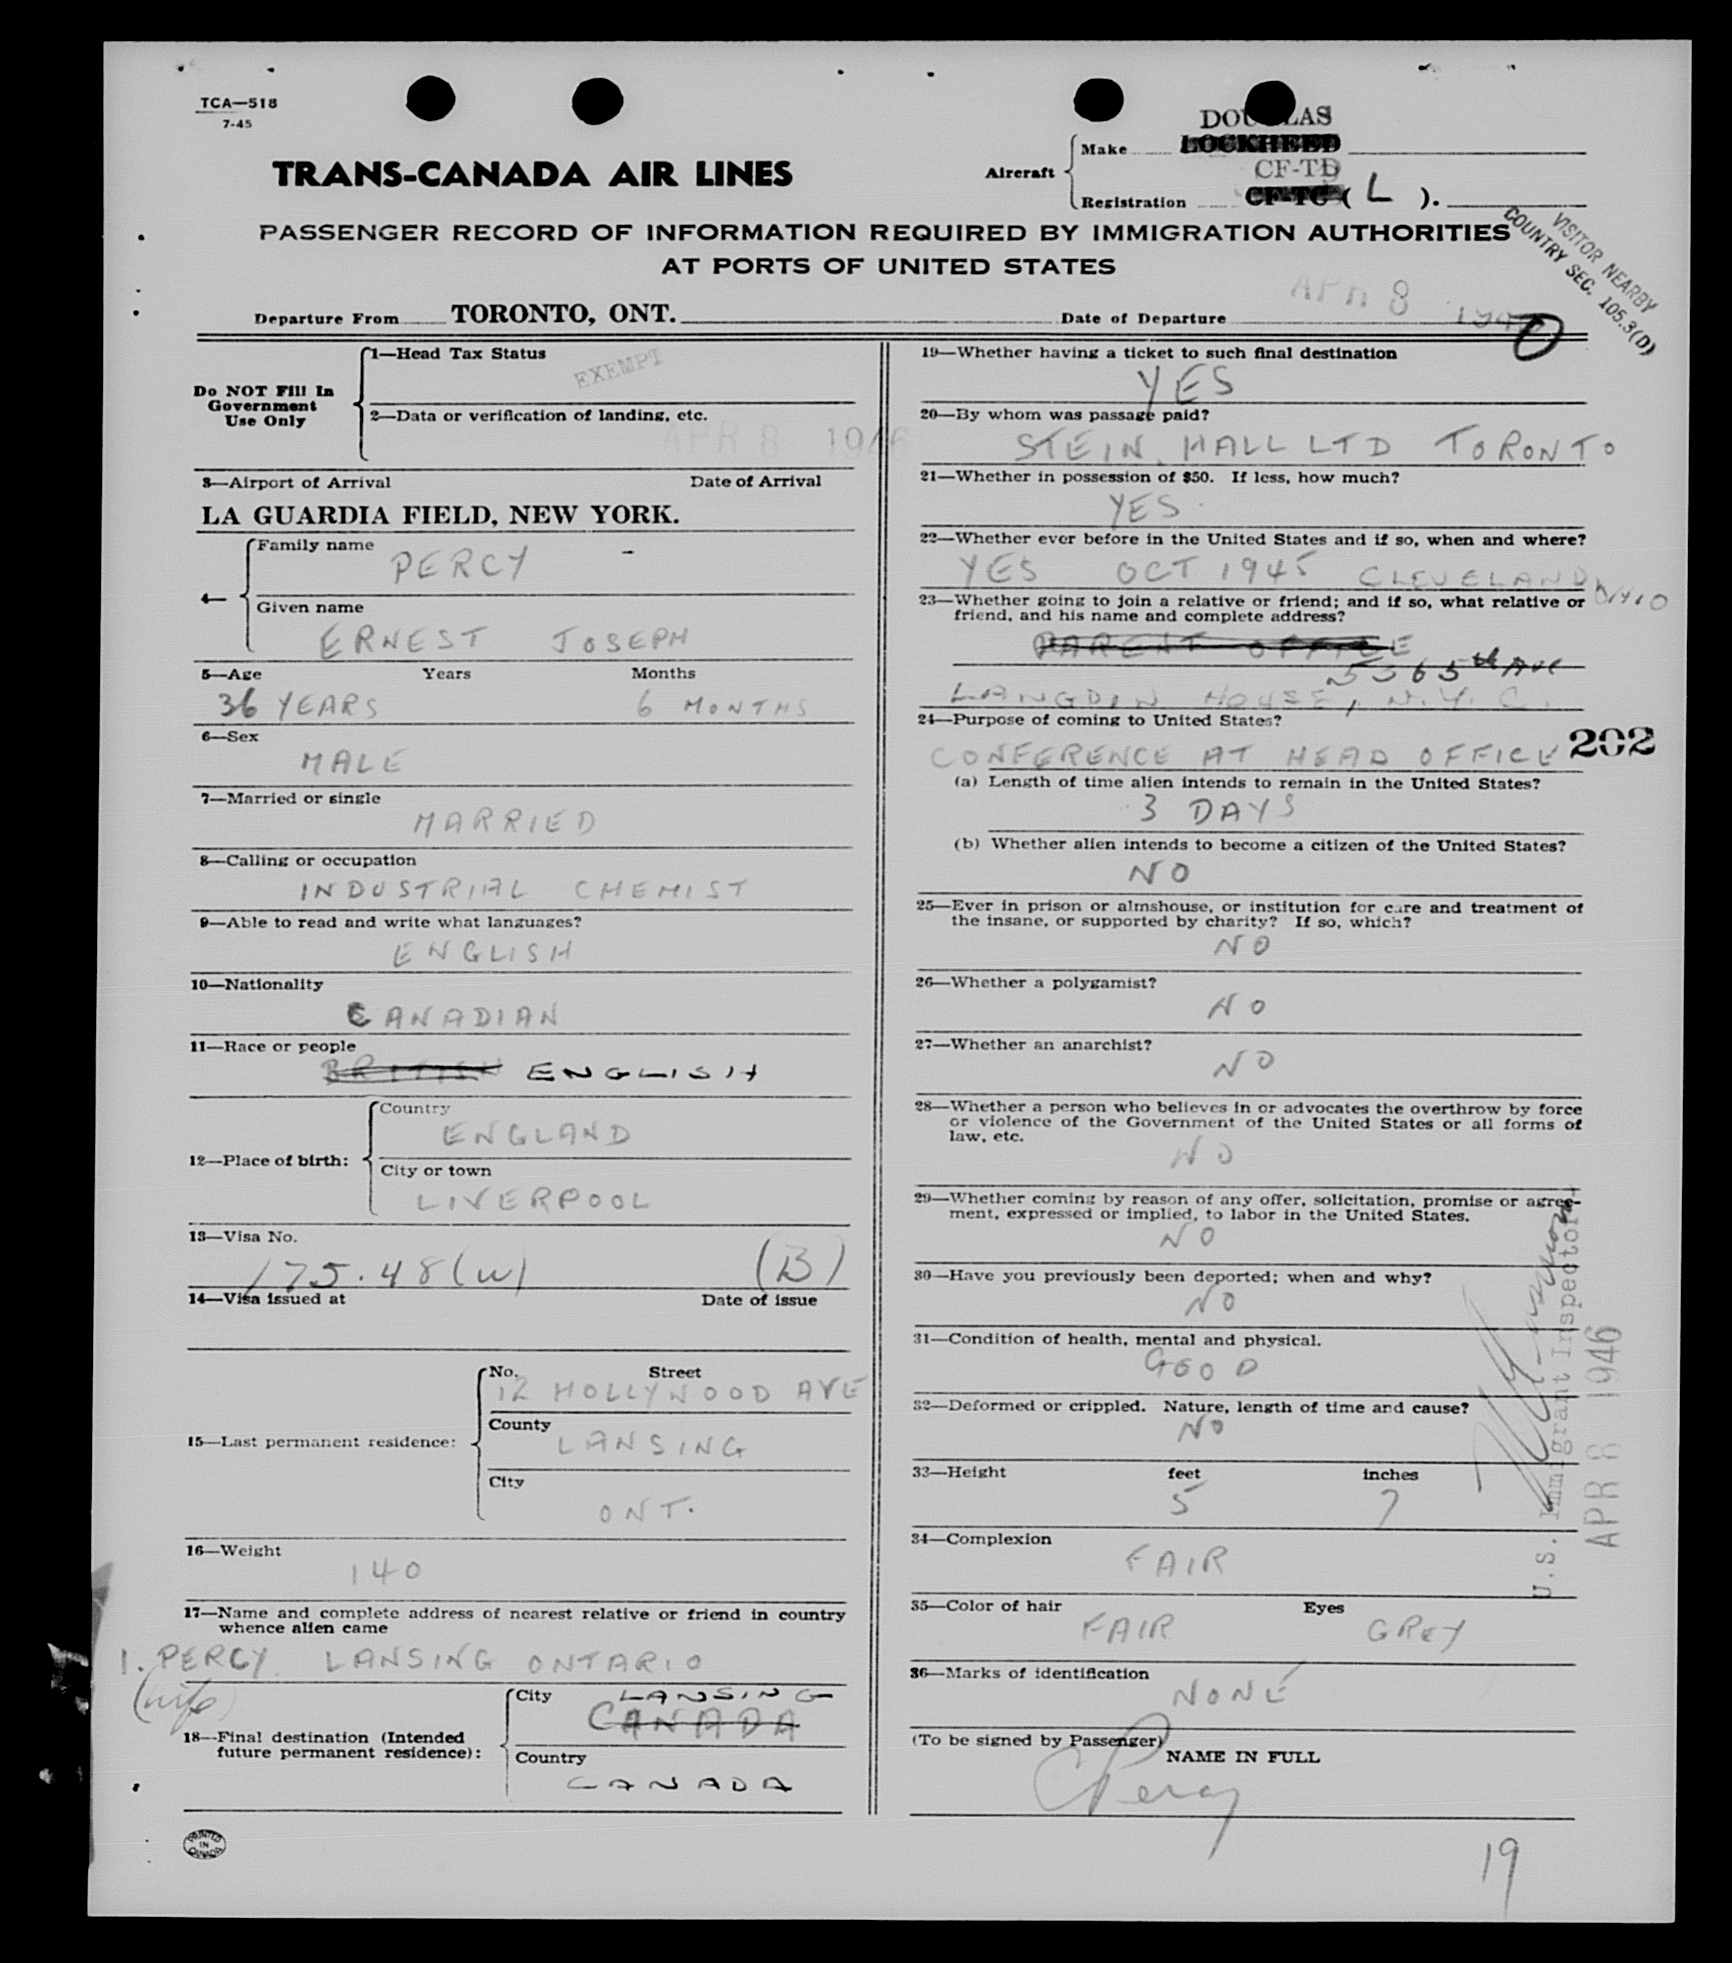 TCA—518
7-45
TRANS-CANADA AIR LINES
Aircraft
Make
DOUGLAS
LOCKHEED
CF-TD
Registration CF-TC ( L ).
PASSENGER RECORD OF INFORMATION REQUIRED BY IMMIGRATION AUTHORITIES
AT PORTS OF UNITED STATES
VISITOR NEARBY
COUNTRY SEC. 105.3(D)
Departure From TORONTO, ONT.
Date of Departure APR 8 1946
Do NOT Fill In
Government
Use Only
1—Head Tax Status
EXEMPT
2—Data or verification of landing, etc.
APR 8 1946
3—Airport of Arrival Date of Arrival
LA GUARDIA FIELD, NEW YORK.
4—
Family name
PERCY
Given name
ERNEST JOSEPH
5—Age Years Months
36 YEARS 6 MONTHS
6—Sex
MALE
7—Married or single
MARRIED
8—Calling or occupation
INDUSTRIAL CHEMIST
9—Able to read and write what languages?
ENGLISH
10—Nationality
CANADIAN
11—Race or people
BRITISH ENGLISH
12—Place of birth:
Country
ENGLAND
City or town
LIVERPOOL
13—Visa No.
175.48(w) (B)
14—Visa issued at Date of issue
15—Last permanent residence:
No. Street
12 HOLLYWOOD AVE
County
LANSING
City
ONT.
16—Weight
140
17—Name and complete address of nearest relative or friend in country
whence alien came
1. PERCY LANSING ONTARIO
(wife)
18—Final destination (Intended
future permanent residence):
City LANSING
CANADA
Country
CANADA
PRINTED
IN
CANADA
19—Whether having a ticket to such final destination
YES
20—By whom was passage paid?
STEIN HALL LTD TORONTO
21—Whether in possession of $50. If less, how much?
YES
22—Whether ever before in the United States and if so, when and where?
YES OCT 1945 CLEVELAND OHIO
23—Whether going to join a relative or friend; and if so, what relative or
friend, and his name and complete address?
PARENT OFFICE
5365th Ave
LANGDON HOUSE, N.Y.C.
24—Purpose of coming to United States?
CONFERENCE AT HEAD OFFICE
202
(a) Length of time alien intends to remain in the United States?
3 DAYS
(b) Whether alien intends to become a citizen of the United States?
NO
25—Ever in prison or almshouse, or institution for care and treatment of
the insane, or supported by charity? If so, which?
NO
26—Whether a polygamist?
NO
27—Whether an anarchist?
NO
28—Whether a person who believes in or advocates the overthrow by force
or violence of the Government of the United States or all forms of
law, etc.
NO
29—Whether coming by reason of any offer, solicitation, promise or agree-
ment, expressed or implied, to labor in the United States.
NO
30—Have you previously been deported; when and why?
NO
31—Condition of health, mental and physical.
GOOD
32—Deformed or crippled. Nature, length of time and cause?
NO
33—Height feet inches
5 7
34—Complexion
FAIR
35—Color of hair Eyes
FAIR GREY
36—Marks of identification
NONE
U.S. Immigrant Inspector
APR 8 1946
(To be signed by Passenger)
NAME IN FULL
Percy
19